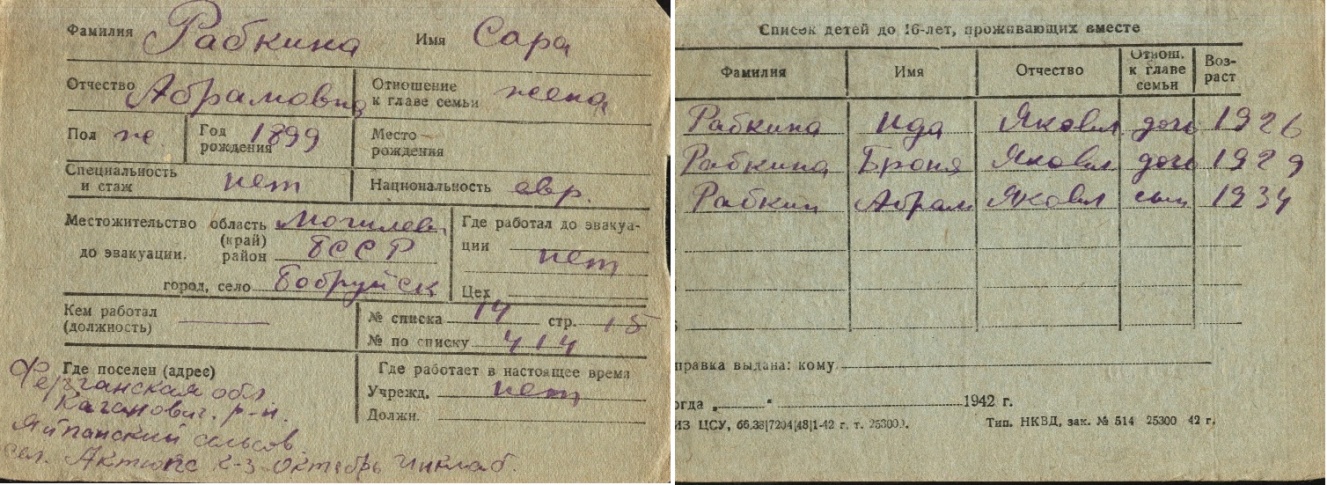 Фамилия Рабкина Имя Сара
Отчество Абрамовна Отношение к главе семьи жена
Пол ж Год рождения 1899 Место рождения
Специальность и стаж нет Национальность евр.
Местожительство до эвакуации. область (край) Могилев.
район БССР
город, село Бобруйск
Где работал до эвакуации нет
Цех
Кем работал (должность)
№ списка 14 стр. 15
№ по списку 414
Где поселен (адрес)
Ферганская обл
Каганович. р-н.
Яйпанский сельсов.
сел. Актюпе к-з Октябрь Инклаб.
Где работает в настоящее время
Учрежд. нет
Должн.
Список детей до 16-лет, проживающих вместе
Фамилия Имя Отчество Отнош. к главе семьи Возраст
Рабкина Ида Яковл дочь 1926
Рабкина Броня Яковл дочь 1929
Рабкин Абрам Яковл сын 1934
правка выдана: кому
огда „ " 1942 г.
ИЗ ЦСУ, 66,38|7204|48|1-42 г. т. 25300. Тип. НКВД, зак. № 514 25300 42 г.